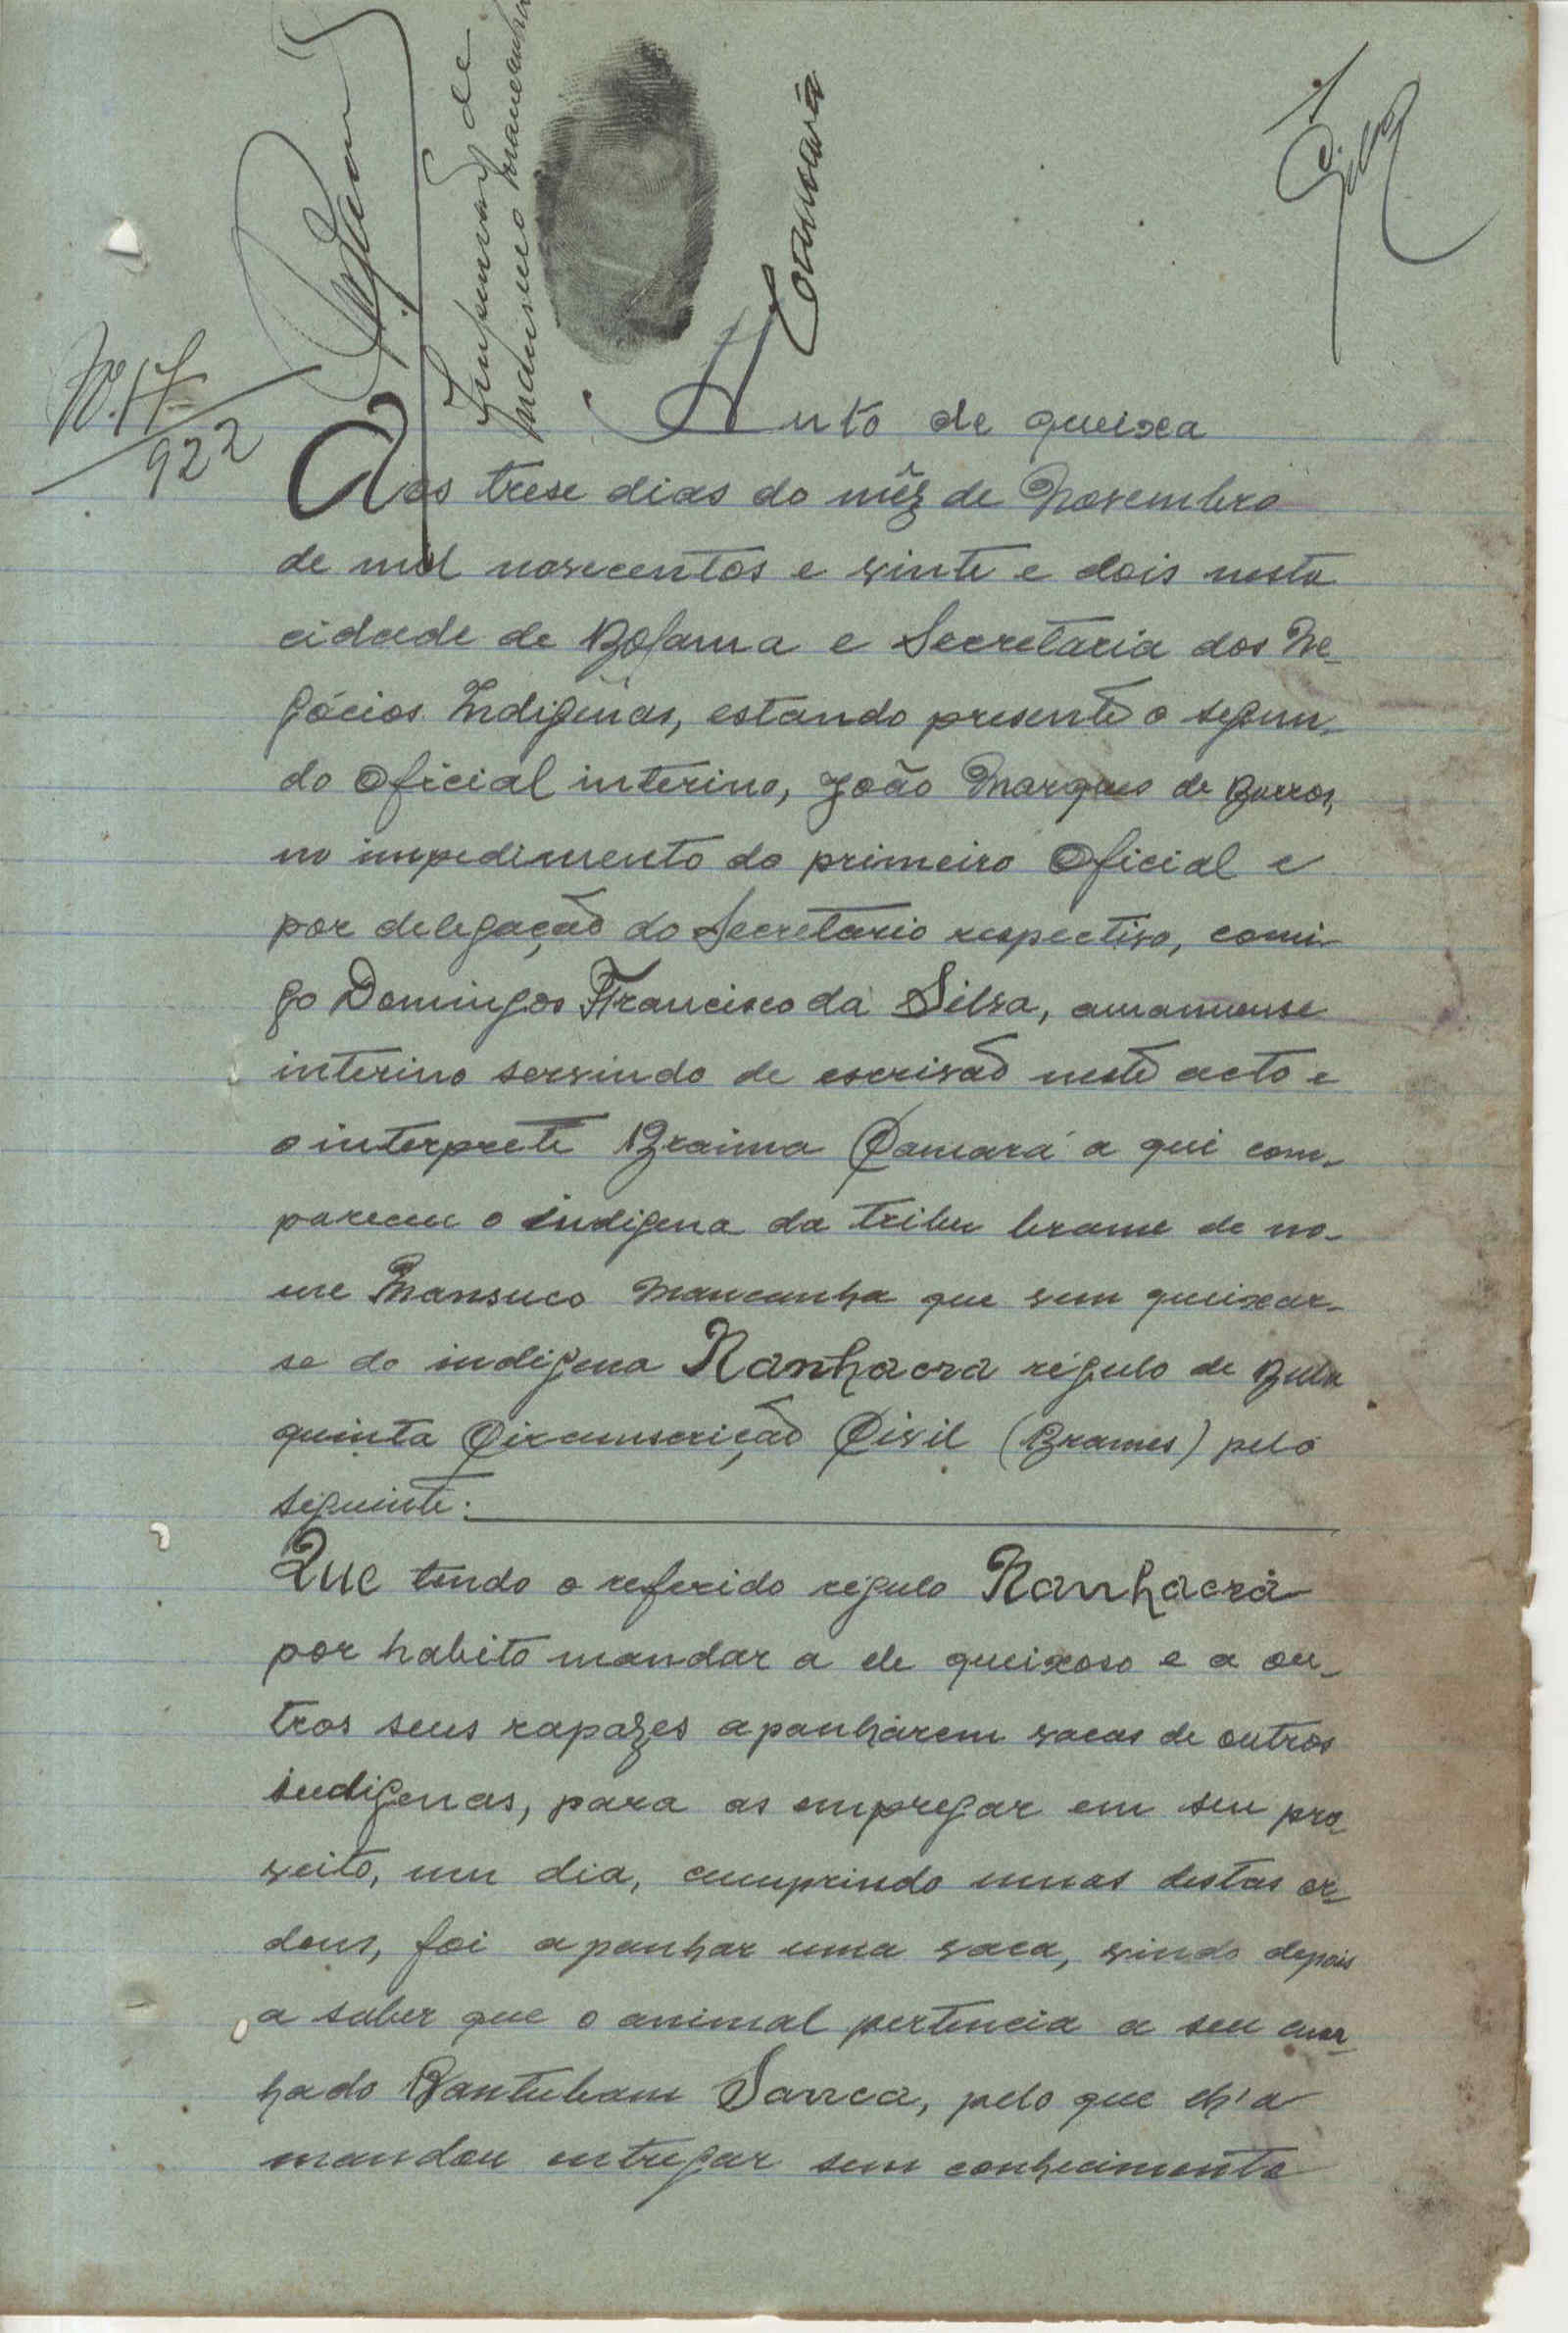 1
Silva
Impressão de
Mansuco Mancanha
Camará
Nº. 17
922
Auto de queixa
Aos trese dias do mêz de Novembro
de mil novecentos e vinte e dois nesta
cidade de Bolama e Secretaria dos Ne-
gócios Indigênas, estando presente o segun-
do Oficial interino, João Marques de Barros,
no impedimento do primeiro Oficial e
por delegação do Secretario respectivo, comi-
go Domingos Francisco da Silva, amanuense
interino servindo de escrivão neste acto e
o interprete Braima Camará a qui com-
pareceu o indigena da tribu brame de no-
me Mansuco Mancanha que vem queixar-
se do indigena Kanhacra régulo de Bula
quinta Circunscrição Civil (Brames) pelo
seguinte:
Que tendo o referido régulo Kanhacrá
por habito mandar a ele queixoso e a ou-
tros seus rapazes apanharem vacas de outros
indigenas, para as empregar em seu pro-
veito, um dia, cumprindo umas destas or-
dens, foi apanhar uma vaca, vindo depois
a saber que o animal pertencia a seu cun-
hado Bantubam Sanca, pelo que lh'a
mandou entregar sem conhecimento